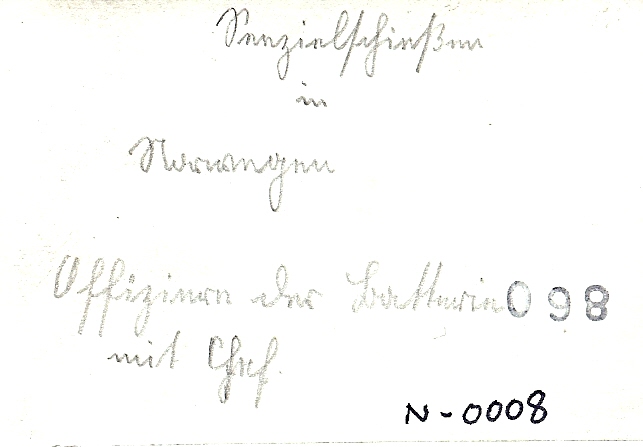 Seezielschießen
in
Norwegen
Offiziere der Batterie 098
mit Chef.
N-0008